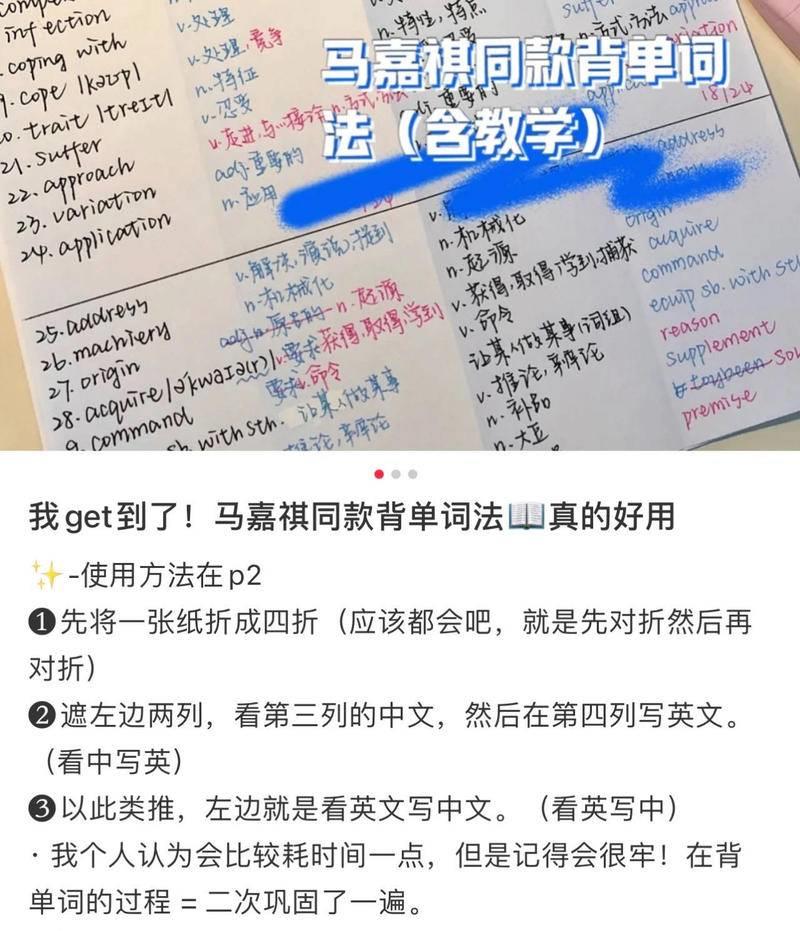 infection
coping with
9. cope /kəʊp/
trait /treɪt/
21. suffer
22. approach
23. variation
24. application
v. 处理
v. 处理, 竞争
n. 特征
v. 忍受
adj 重要的
n. 应用
n. 特性, 特点
马嘉祺同款背单词
法（含教学）
18/24
25. address
26. machiery
27. origin
28. acquire /ə'kwaɪə(r)/
9. command
sb. with sth.
v. 解决, 演说, 提到
n. 机械化
n. 起源
v. 要求 获得, 取得, 学到
命令
让某人做某事
推论, 辩论
n. 机械化
n. 起源
v. 获得, 取得, 学到, 捕获
v. 命令
让某人做某事 (词组)
v. 推论, 辩论
n. 补助
n. 大豆
address
origin
acquire
command
equip sb. with sth
reason
supplement
premise
我get到了！马嘉祺同款背单词法📖真的好用
✨-使用方法在p2
❶先将一张纸折成四折（应该都会吧，就是先对折然后再
对折）
❷遮左边两列，看第三列的中文，然后在第四列写英文。
（看中写英）
❸以此类推，左边就是看英文写中文。（看英写中）
· 我个人认为会比较耗时间一点，但是记得会很牢！在背
单词的过程 = 二次巩固了一遍。